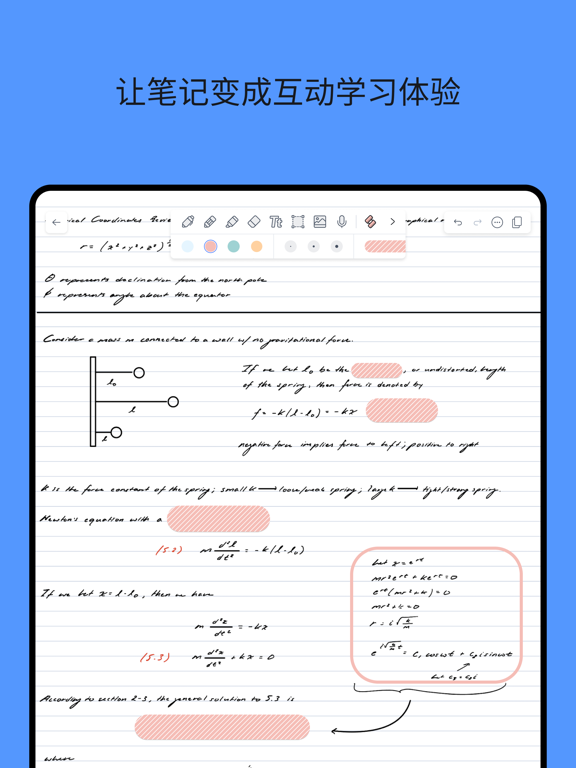 让笔记变成互动学习体验
ical Coordinates Review
Tt
r = (x²+y²+z²)
θ represents declination from the north pole
ϕ represents angle about the equator
Consider a mass m connected to a wall w/ no gravitational force.
l₀
l
l
If we let l₀ be the , or undistorted, length
of the spring, then force is denoted by
f = -k(l-l₀) = -kx
negative force implies force to left; positive to right
K is the force constant of the spring; small k → loose/weak spring; large k → tight/strong spring.
Newton's equation with a
(5.2) m d²l/dt² = -k(l-l₀)
If we let x = l-l₀, then we have
m d²x/dt² = -kx
(5.3) m d²x/dt² + kx = 0
According to section 2-3, the general solution to 5.3 is
where
let x = eʳᵗ
mr²eʳᵗ + keʳᵗ = 0
eʳᵗ(mr²+k) = 0
mr²+k = 0
r = i√(k/m)